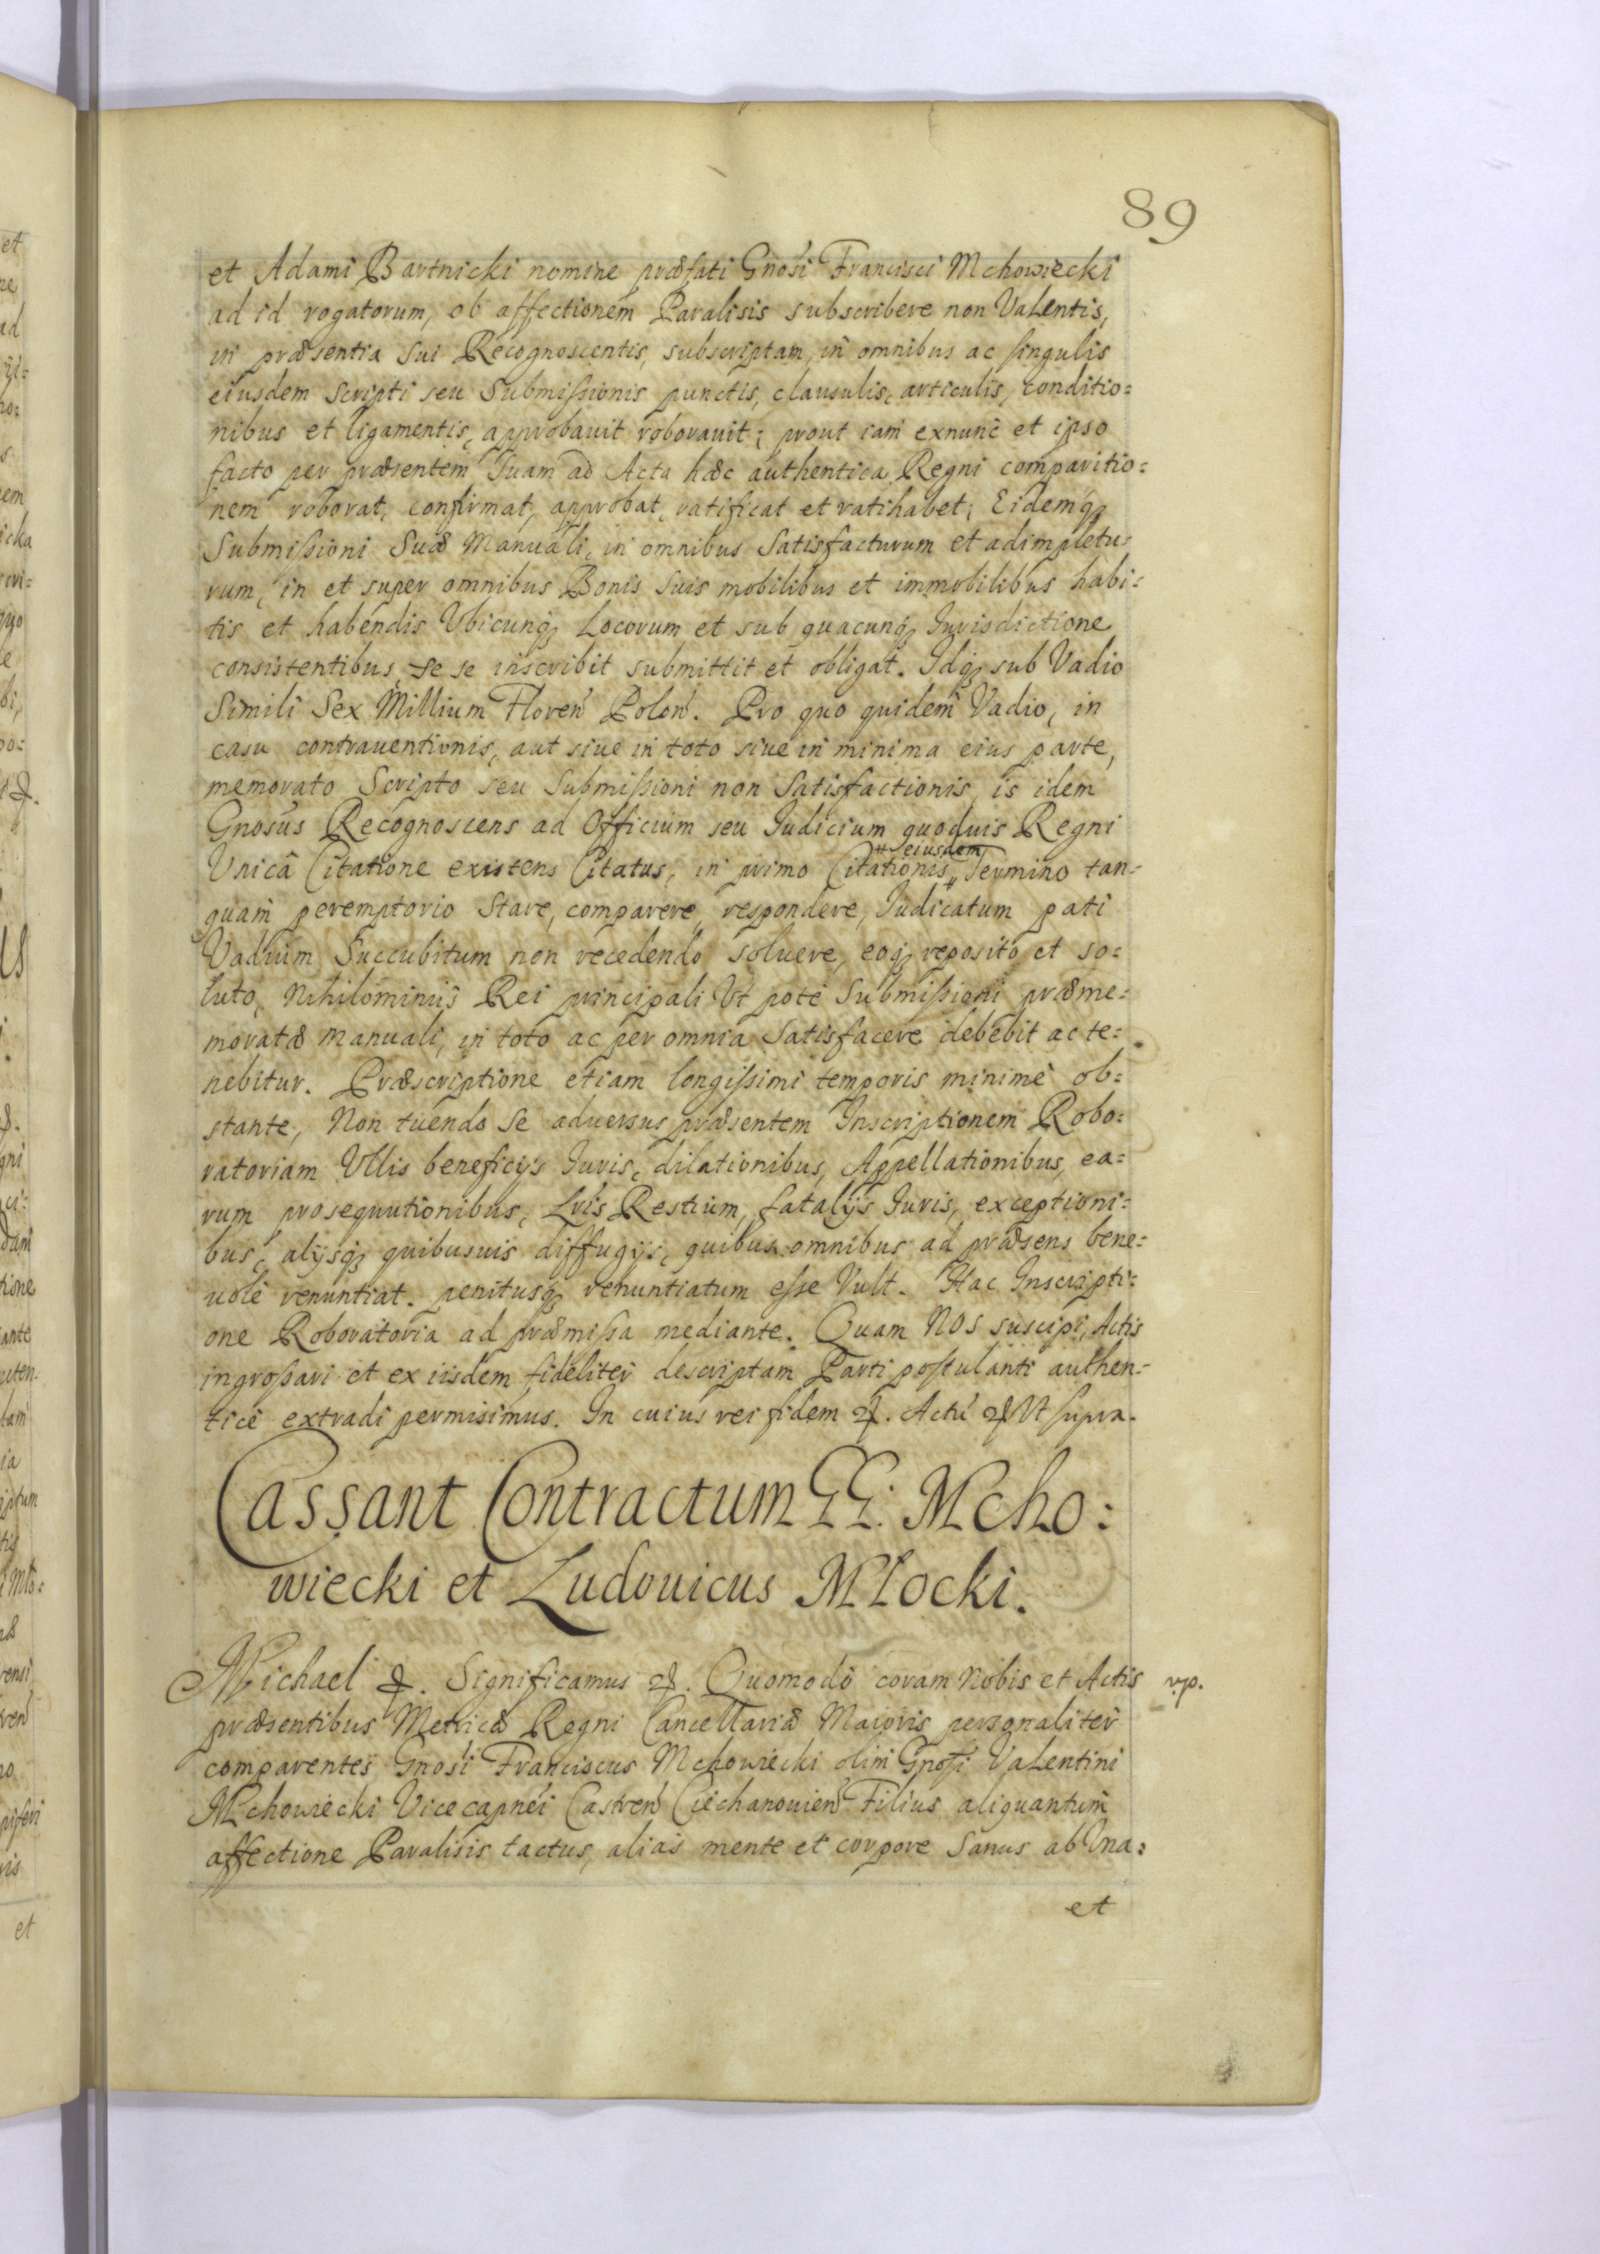 89
et Adami Bartnicki nomine præfati Gnosi Francisci Mchowiecki
ad id rogatorum, ob affectionem Paralisis subscribere non Valentis,
in præsentia sui Recognoscentis, subscriptam, in omnibus ac singulis
eiusdem scripti seu Submissionis punctis, clausulis, articulis, conditio=
nibus et ligamentis, approbavit roboravit; prout iam exnunc et ipso
facto per præsentem Suam ad Acta hæc authentica Regni comparitio=
nem roborat, confirmat, approbat, ratificat et ratihabet; Eidemq₃
Submissioni Suæ Manuali, in omnibus Satisfacturum et adimpletu=
rum, in et super omnibus Bonis suis mobilibus et immobilibus habi=
tis et habendis Vbicunq₃ Locorum et sub quacunq₃ Iurisdictione
consistentibus, se se inscribit submittit et obligat. Idq₃ sub Vadio
Simili Sex Millium Floren Polon. Pro quo quidem Vadio, in
casu contrauentionis, aut siue in toto siue in minima eius parte,
memorato Scripto seu Submissioni non Satisfactionis, is idem
Gnosus Recognoscens ad Officium seu Iudicium quoduis Regni
Vnicâ Citatione existens Citatus, in primo Citationis " eiusdem " Termino tan=
quam peremptorio Stare, comparere, respondere, Iudicatum pati
Vadium Succubitum non recedendo soluere, eoq₃ reposito et so=
luto, Nihilominus Rei principali Vt pote Submissioni præme=
moratæ Manuali, in toto ac per omnia Satisfacere debebit ac te=
nebitur. Præscriptione etiam longissimi temporis minimè ob=
stante, Non tuendo se aduersus præsentem Inscriptionem Robo=
ratoriam Vllis beneficijs Iuris, dilationibus, Appellationibus, ea=
rum prosequutionibus, Lris Restium, fatalijs Iuris, exceptioni=
bus, alijsq₃ quibusuis diffugijs, quibus omnibus ad præsens bene=
uolè renuntiat. penitusq₃ renuntiatum esse Vult. Hac Inscripti=
one Roboratoria ad præmissa mediante. Quam NOS suscipi, Actis
ingrossari et ex iisdem fideliter descriptam Parti postulanti authen=
ticè extradi permisimus. In cuius rei fidem &. Actu & Vt supra.
Cassant Contractum GG: Mcho=
wiecki et Ludouicus Młocki.
Michael &. Significamus &. Quomodo coram Nobis et Actis
vp.
præsentibus Metricæ Regni Cancellariæ Maioris personaliter
comparentes Gnosi Franciscus Mchowiecki olim Gnosi Valentini
Mchowiecki Vicecapnei Castren Ciechanouien Filius aliquantum
affectione Paralisis tactus, aliàs mente et corpore Sanus ab Vna=
et